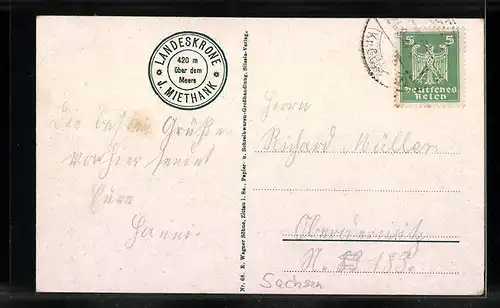 LANDESKRONE
420 m
über dem
Meere
J. MIETHANK
Die besten Grüße
von hier sendet
Eure
Hanni.
Nr. 68. R. Wagner Söhne, Zittau i. Sa., Papier- u. Schreibwaren-Großhandlung, Silesia-Verlag.
5 5
Deutsches
Reich
Herrn
Richard Müller
Oberoderwitz
N. 183.
Sachsen